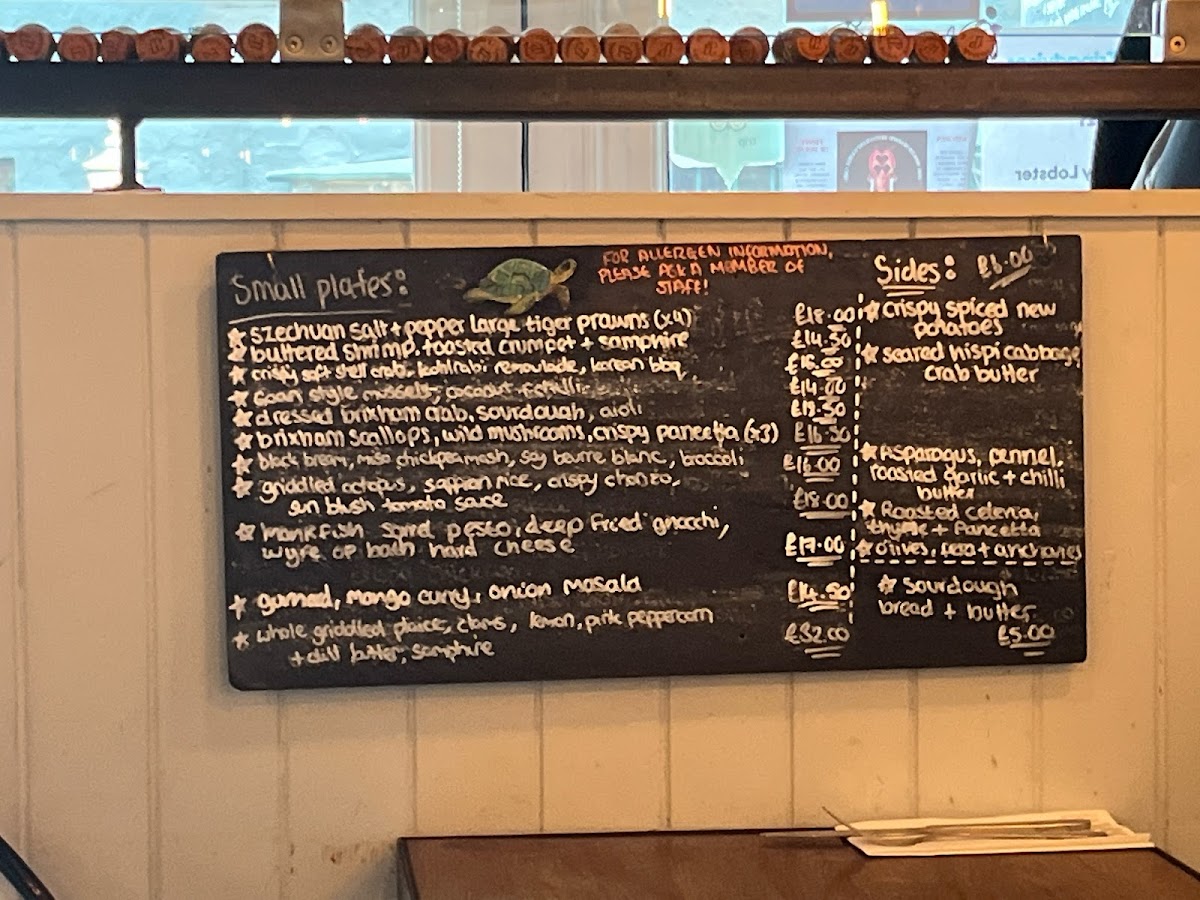 Small plates:
FOR ALLERGEN INFORMATION,
PLEASE ASK A MEMBER OF
STAFF!
szechuan salt + pepper large tiger prawns (x4) £18.00
buttered shrimp, toasted crumpet + samphire £14.50
crispy soft shell crab, kohlrabi remoulade, korean bbq £16.00
Goan style mussels, coconut + chilli £14.00
dressed brixham crab, sourdough, aioli £13.50
brixham scallops, wild mushrooms, crispy pancetta (x3) £16.50
black bream, miso chickpea mash, soy beurre blanc, broccoli £16.00
griddled octopus, saffron rice, crispy chorizo,
sun blush tomato sauce £18.00
monkfish, pesto, deep fried gnocchi,
wyfe of bath hard cheese £17.00
gurnard, mango curry, onion masala £14.50
whole griddled plaice, clams, lemon, pink peppercorn
+ dill butter, samphire £32.00
Sides: £6.00
crispy spiced new
potatoes
seared hispi cabbage
crab butter
Asparagus, fennel,
roasted garlic + chilli
butter
Roasted celeriac,
thyme + Pancetta
olives, feta + anchovies
sourdough
bread + butter
£5.00
y Lobster